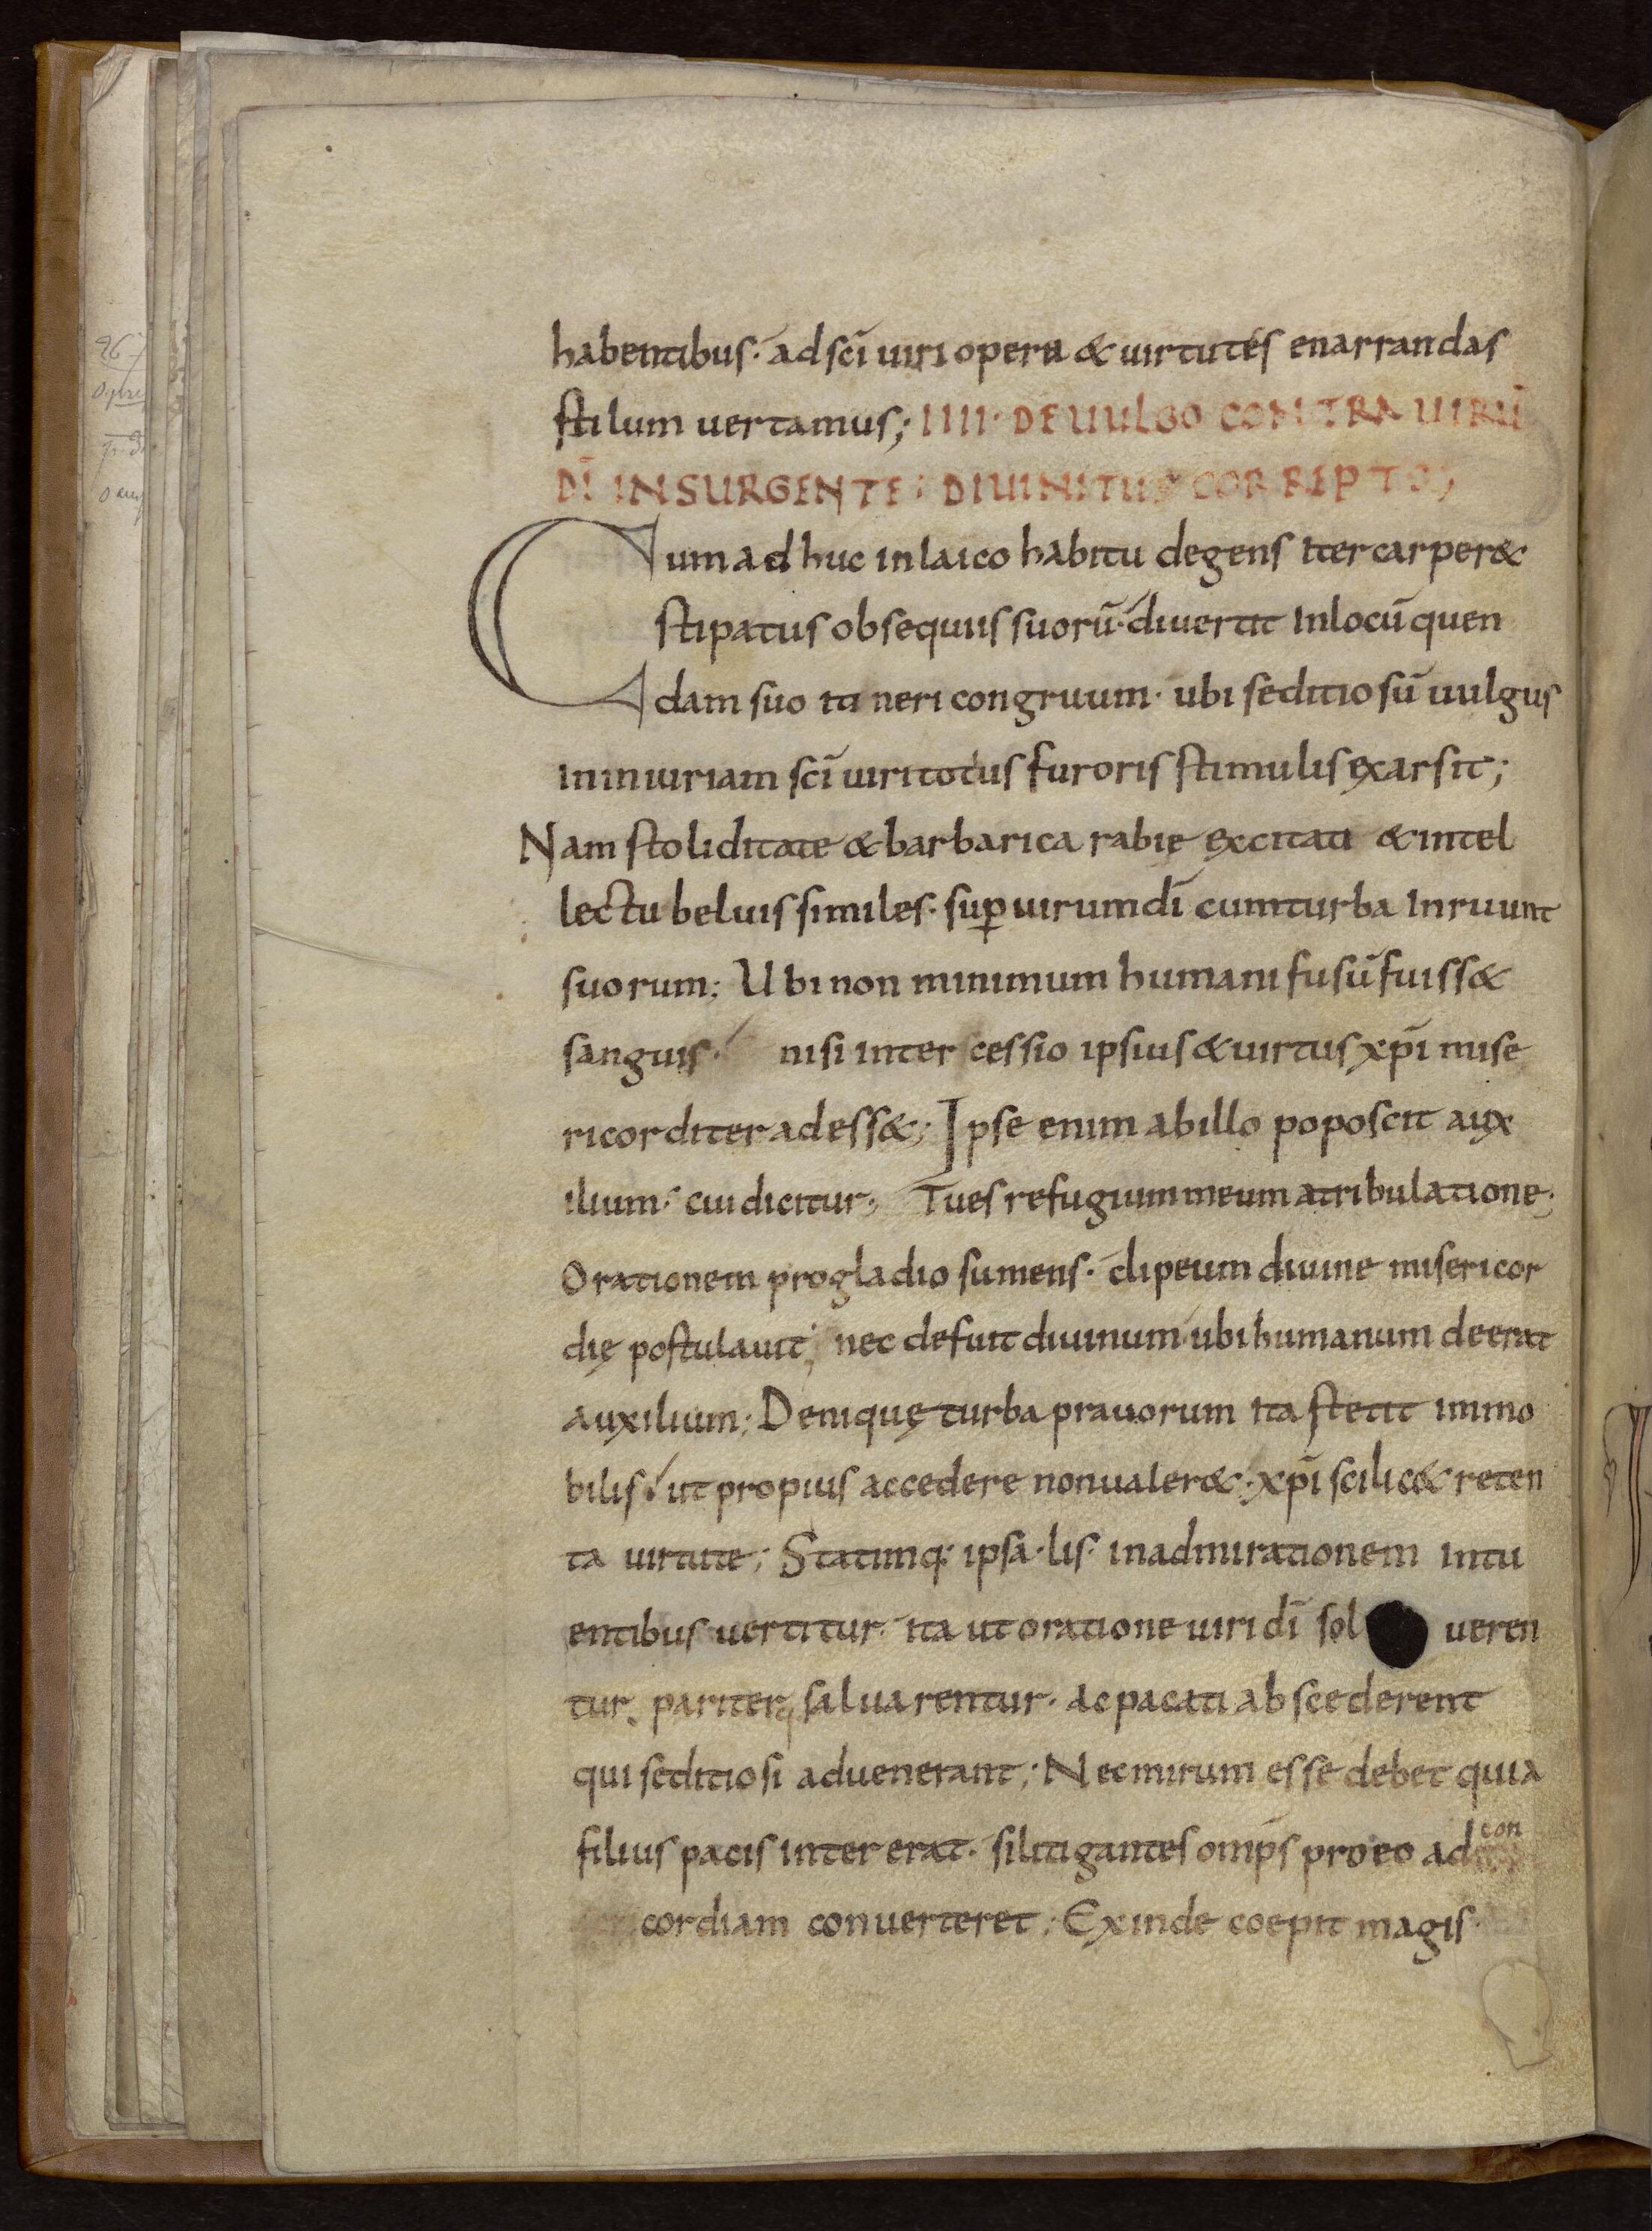 habentibus· ad sc̄i uiri opera & uirtutes enarrandas
stilum uertamus; IIII· DE UULGO CONTRA UIRŪ
DĪ INSURGENTE· DIUINITUS CORREPTO;
Cum adhuc in laico habitu degens iter carper&
stipatus obsequiis suorū· diuertit in locū quen
dam suo itineri congruum· ubi seditiosū uulgus
in iniuriam sc̄i uiri totus furoris stimulis exarsit;
Nam stoliditate & barbarica rabie excitati & intel
lectu beluis similes· sup̄ uirum dī cum turba inruunt
suorum; Ubi non minimum humani fusū fuiss&
sanguis· nisi intercessio ipsius & uirtus xp̄i mise
ricorditer adess&; Ipse enim ab illo poposcit aux
ilium· cui dicitur; Tu es refugium meum a tribulatione;
Orationem pro gladio sumens· clipeum diuine misericor
dię postulauit; nec defuit diuinum ubi humanum deerat
auxilium; Denique turba prauorum ita stetit immo
bilis· ut propius accedere non ualer&· xp̄i scilic& reten
ta uirtute; Statimq· ipsa· lis· in admirationem intu
entibus uertitur· ita ut oratione uiri dī sol ueren
tur· pariterq· saluarentur· ac pacati abscederent
qui seditiosi aduenerant; Nec mirum esse debet quia
filius pacis intererat· si litigantes omp̄s pro eo ad con
cordiam conuerteret; Exinde coepit magis·